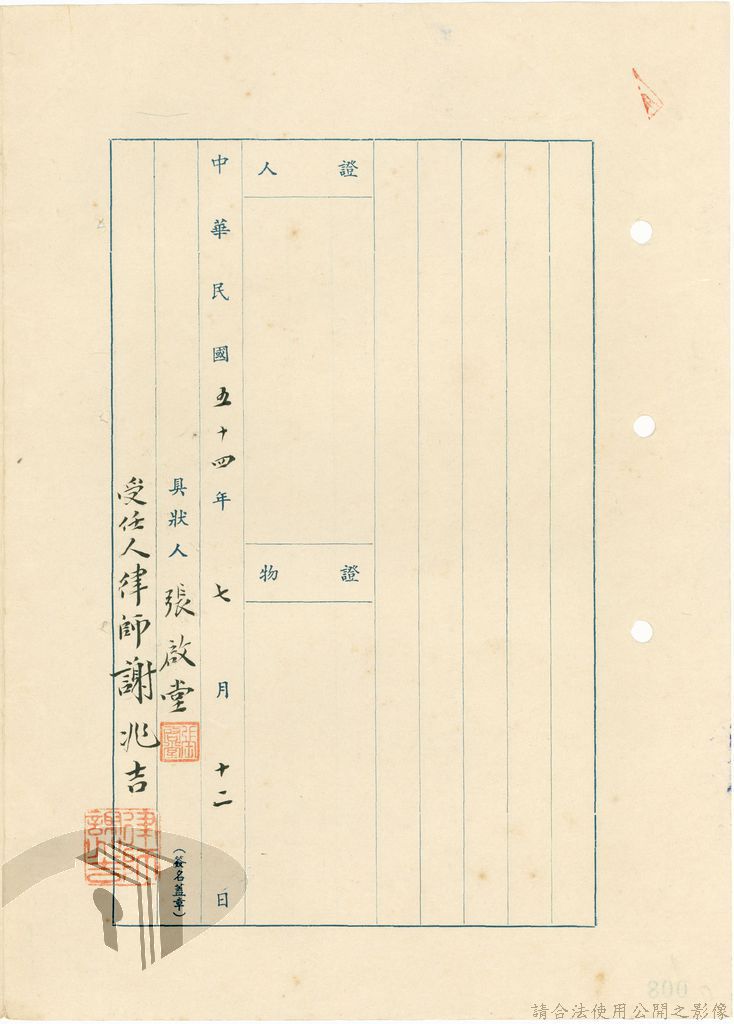 證人
證物
中華民國五十四年七月十二日
具狀人 張啟堂 (簽名蓋章)
受任人律師謝兆吉
律師謝兆吉
請合法使用公開之影像